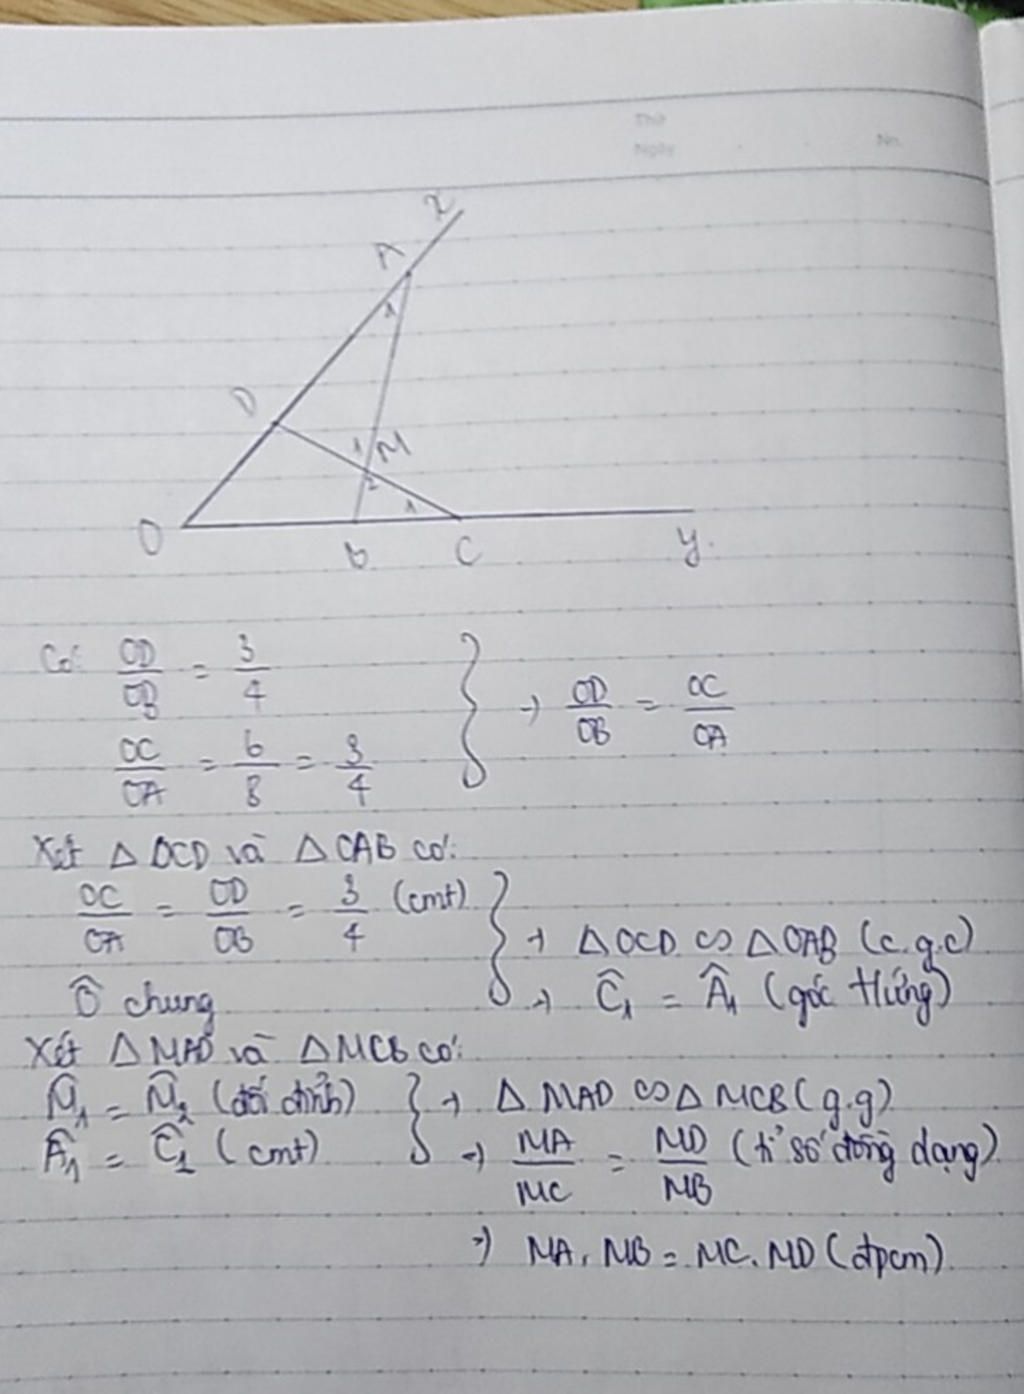 Thứ
Ngày
No.
x
A
1
D
1 M
2
1
O
B
C
y.
Có: OD/OB = 3/4
OC/OA = 6/8 = 3/4
} → OD/OB = OC/OA
Xét △ OCD và △ OAB có:
OC/OA = OD/OB = 3/4 (cmt)
Ô chung
} → △OCD ∽ △OAB (c.g.c)
→ Ĉ₁ = Â₁ (góc tứng)
Xét △ MAD và △ MCB có:
M̂₁ = M̂₂ (đối đỉnh) } → △ MAD ∽ △ MCB (g.g)
Â₁ = Ĉ₁ (cmt) → MA/MC = MD/MB (tỉ số đồng dạng)
→ MA . MB = MC . MD (đpcm)